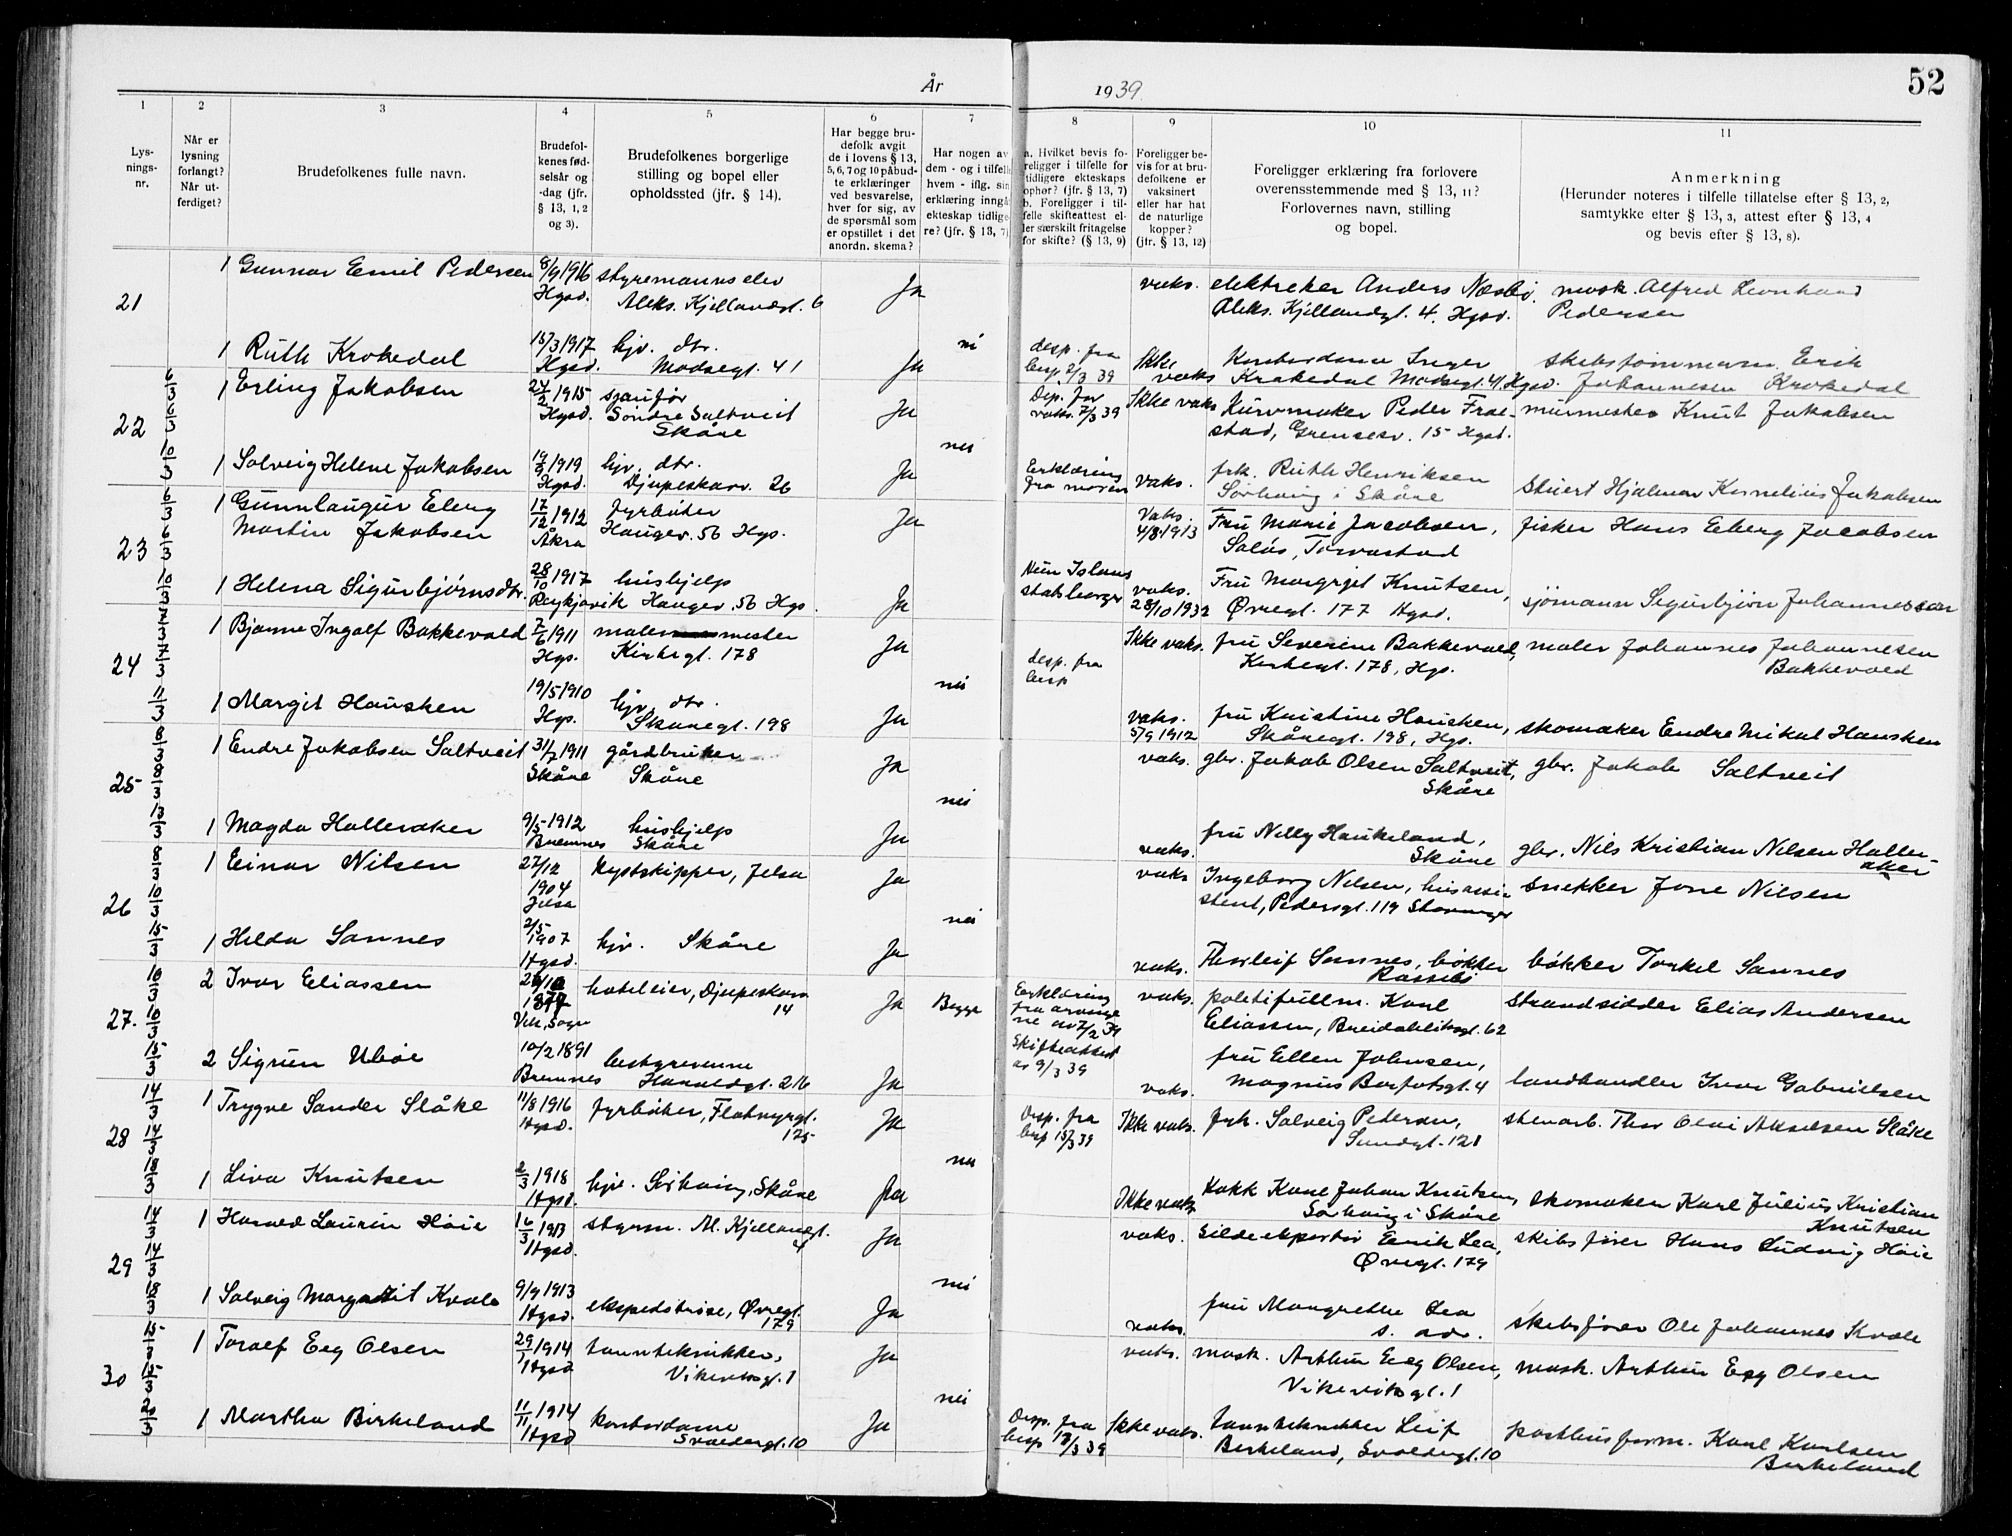 52
År 1939.
1 2 3 4 5 6 7 8 9 10 11
Lys-
nings-
nr.
Når er
lysning
forlangt?
Når ut-
ferdiget?
Brudefolkenes fulle navn.
Brudefol-
kenes fød-
selsår og
-dag (jfr.
§ 13, 1, 2
og 3).
Brudefolkenes borgerlige
stilling og bopel eller
opholdssted (jfr. § 14).
Har begge bru-
defolk avgit
de i lovens § 13,
5, 6, 7 og 10 påbud-
te erklæringer
ved besvarelse,
hver for sig, av
de spørsmål som
er opstillet i det
anordn. skema?
Har nogen av
dem - og i tilfelle
hvem - iflg. sin
erklæring inngå
ekteskap tidlige
re? (jfr. § 13, 7)
a. Hvilket bevis fo-
religger i tilfelle for
tidligere ekteskaps
ophør? (jfr. § 13, 7)
b. Foreligger i til-
felle skifteattest el-
ler særskilt fritagelse
for skifte? (§ 13, 9)
Foreligger be-
vis for at bru-
defolkene er
vaksinert
eller har hat
de naturlige
kopper?
(jfr. § 13, 12)
Foreligger erklæring fra forlovere
overensstemmende med § 13, 11?
Forlovernes navn, stilling
og bopel.
Anmerkning
(Herunder noteres i tilfelle tillatelse efter § 13, 2,
samtykke efter § 13, 3, attest efter § 13, 4
og bevis efter § 13, 8).
21
1 Gunnar Emil Pedersen
8/9 1916
Hgsd.
styremannselev
Aleks. Kjellandsgt. 6
Ja
vaks.
elektriker Anders Næsbø,
Aleks. Kjellandgt. 4, Hgsd.
mask. Alfred Leonhard
Pedersen
1 Ruth Krokedal
15/3 1917
Hgsd.
hjv. dtr.
Mødregt. 41
Ja
nei
desp. fra
lysn 2/3 39
Ikke
vaks
Kontordame Inger
Krokedal 41, Hgsd.
skibstømmerm. Erik
Johannesen Krokedal
22
6/3
6/3
10/3
1 Erling Jakobsen
24/2 1915
Hgsd.
sjåufør
Søndre Saltveit
Skåre
Ja
nei
Disp. for
vaks. 7/3 39
Ikke vaks
Kurvmaker Peder Frae-
stad, Grensesv. 15 Hgsd.
murmester Knut Jakobsen
1 Solveig Helene Jakobsen
19/9 1919
Hgsd.
hjv. dtr.
Djupeskarv. 26
Ja
Erklæring
fra moren
vaks.
frk. Ruth Henriksen
Sørhaug i Skåre
Stuert Hjalmar Kornelius Jakobsen
23
6/3
6/3
10/3
1 Gunnlaugur Eberg
Martin Jakobsen
17/12 1912
Åkra
fyrbøter
Haugev. 56 Hgs.
Ja
Vaks.
4/8 1913
Fru Marie Jacobsen,
Saløs, Torvastad
fisker Hans Eberg Jacobsen
1 Helena Sigurbjørnsdtr.
28/10 1917
Reykjavik
hushjelp
Haugev. 56 Hgs.
Ja
Islans
statsborger
vaks.
28/10 1932
Fru Margrjet Knutsen,
Øvregt. 177 Hgsd.
sjømann Sigurbjørn Johannesson
24
7/3
7/3
11/3
1 Bjarne Ingolf Bakkevold
7/6 1911
Hgs.
malermester
Kirkegt. 178
Ja
nei
desp. fra
lysn
Ikke vaks.
fru Severine Bakkevold,
Kirkegt. 178, Hgs.
maler Johannes Johannesen
Bakkevold
1 Margit Hausken
19/5 1910
Hgs.
hjv. dtr.
Skåregt. 198
Ja
vaks.
5/9 1912
fru Kristine Hausken,
Skåregt. 198, Hgs.
skomaker Endre Mikal Hausken
25
8/3
8/3
13/3
1 Endre Jakobsen Saltveit
31/7 1911
Skåre
gårdbruker
Skåre
Ja
nei
vaks.
gbr. Jakob Olsen Saltveit,
Skåre
gbr. Jakob Saltveit
1 Magda Halleraker
9/5 1912
Bremnes
hushjelp
Skåre
Ja
vaks.
fru Nelly Haukeland,
Skåre
gbr. Nils Kristian Nilsen Haller-
aker
26
8/3
10/3
15/3
1 Einar Nilsen
27/12
1904
Jelsa
Kystskipper, Jelsa
Ja
nei
vaks
Ingeborg Nilsen, husassi-
stent, Pedersgt. 119 Stavanger
Snekker Jone Nilsen
1 Hilda Sannes
2/5
1907
Hgsd.
hjv. Skåre
Ja
vaks.
Thorleif Sannes, bøkker
bøkker Torkel Sannes
27.
10/3
10/3
15/3
2 Ivar Eliassen
Vik, Sogn
hoteleier, Djupeskarv
14
Ja
Begge
Erklæring
fra arvinge
ne av 7/2 39
Skifteattest
av 9/3 39
vaks.
politifullm. Karl
Eliassen, Breidablikgt. 62
Strandsidder Elias Andersen
2 Sigrun Ubøe
10/2 1891
Bremnes
bestyrerinne
Haraldsgt. 216
Ja
vaks.
fru Ellen Johnsen,
Magnus Barfotsgt. 4
landhandler Ivar Gabrielsen
28
14/3
14/3
18/3
1 Trygve Sander Slåke
11/8 1916
Hgsd.
fyrbøter, Flotmyrgt.
175
Ja
nei
Disp. fra
lysn 15/3 39
Ikke vaks.
frk. Solveig Pedersen,
Sundgt. 121
stenarb. Thor Olai Akselsen Slåke
1 Liva Knutsen
2/3 1918
Hgsd.
hjv. Sørhaug, Skåre
Ja
Ikke vaks
Kokk Karl Johan Knutsen,
Sørhaug i Skåre
skomaker Karl Julius Kristian
Knutsen
29
14/3
14/3
18/3
1 Harald Laurin Høie
16/3 1913
Hgsd.
styrm. Al. Kjellandgt.
4
Ja
nei
vaks.
Sildeeksportør Eerik Lea,
Øvregt. 179
skibsfører Hans Ludvig Høie
1 Solveig Margrethe Kvale
9/9 1913
Hgsd.
ekspeditrise, Øvregt.
179
Ja
vaks.
fru Margrethe Lea
s. adr.
skibsfører Ole Johannes Kvale
30
15/3
15/3
20/3
1 Toralf Eeg Olsen
29/1 1914
Hgsd
tanntekniker,
Vikevoksgt. 1
Ja
nei
vaks.
mask. Arthur Eeg Olsen,
Vikevoksgt. 1
mask. Arthur Eeg Olsen
1 Martha Birkeland
11/11 1914
Hgsd
kontordame
Svoldergt. 10
Ja
Disp. fra
lysn 17/3 39
Ikke vaks.
tanntekniker Leif
Birkeland, Svoldergt. 10
posthusform. Karl Karlsen
Birkeland